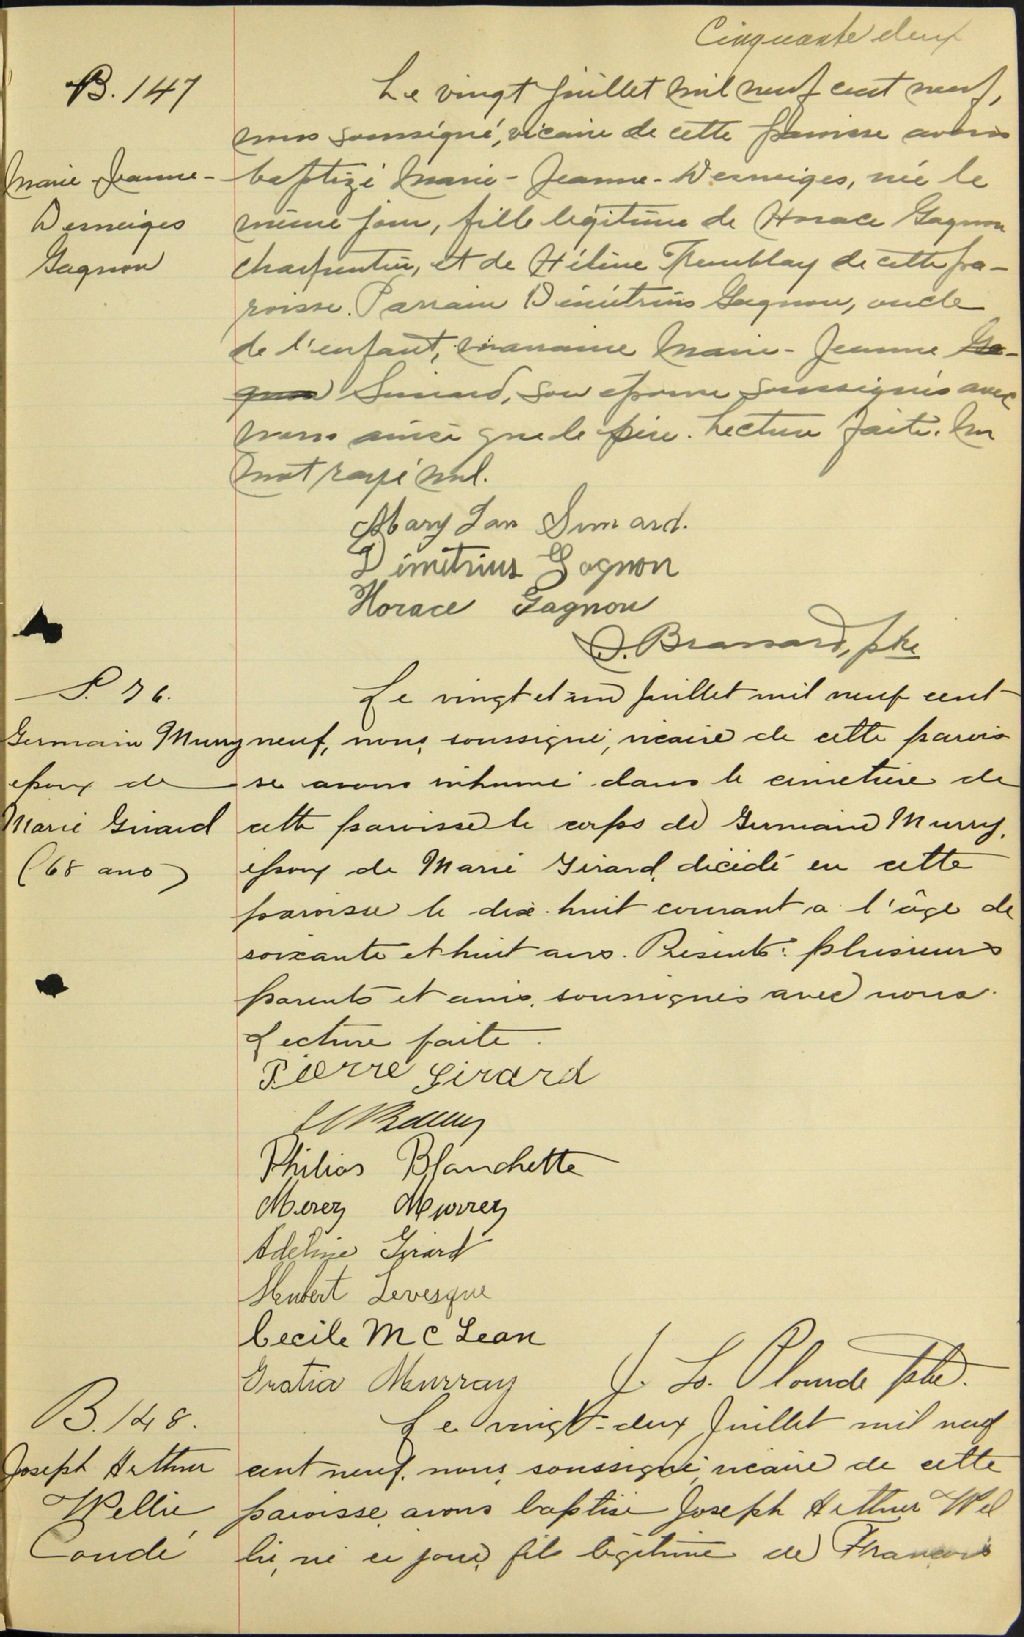 Cinquante deux
B. 147
Marie-Jeanne-
Derneiges
Gagnon
Le vingt juillet mil neuf cent neuf,
nous soussigné, vicaire de cette paroisse avons
baptizé Marie-Jeanne-Derneiges, née le
même jour, fille légitime de Horace Gagnon
charpentier, et de Hélène Tremblay de cette pa-
roisse. Parrain Dimitrius Gagnon, oncle
de l'enfant, marraine Marie-Jeanne Ga-
gnon Simard, son épouse soussignés avec
nous ainsi que le père. Lecture faite. Un
mot rayé nul.
Mary Jan Simard.
Dimitrius Gagnon
Horace Gagnon
O. Brassard, ptre
S. 76.
Germain Murry
époux de
Marie Girard
(68 ans)
Le vingt et un Juillet mil neuf cent
neuf, nous, soussigné, vicaire de cette parois
se avons inhumé dans le cimetière de
cette paroisse le corps de Germain Murry,
époux de Marie Girard, décédé en cette
paroisse le dix-huit courant a l'âge de
soixante et huit ans. Présents: plusieurs
parents et amis, soussignés avec nous.
Lecture faite.
Pierre Girard
Philias Blanchette
Merez Murrez
Adeline Girard
Hubert Levesque
Cecile McLean
Gratia Murray
J. Ls. Plourde ptre.
B. 148.
Joseph Arthur
Wellie
Condé
Le vingt-deux Juillet mil neuf
cent neuf, nous, soussigné, vicaire de cette
paroisse, avons baptisé Joseph Arthur Wel
lie, né ce jour, fils légitime de François